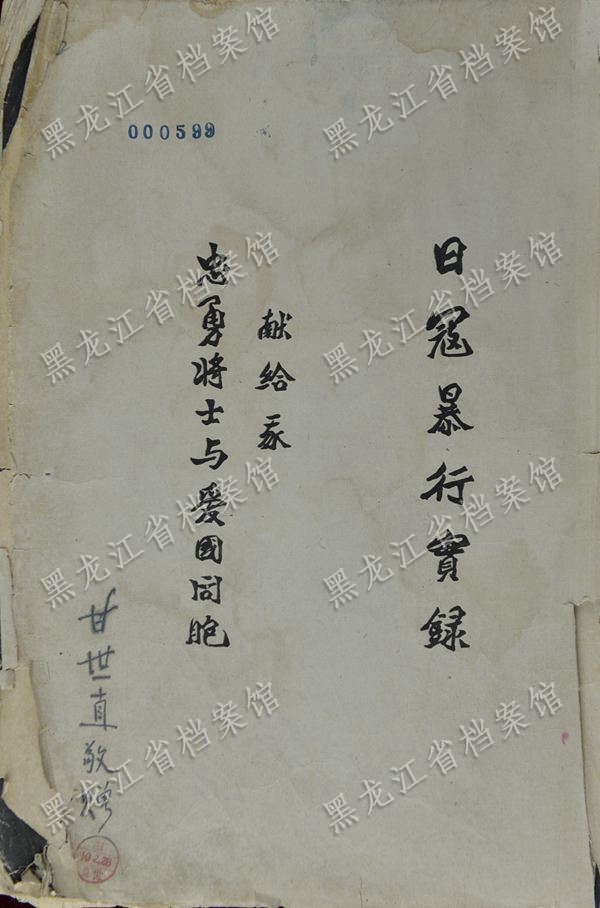 000599
日寇暴行實録
献给我
忠勇将士与爱國同胞
甘世直敬赠
黑龙江省档案馆
黑龙江省档案馆
黑龙江省档案馆
黑龙江省档案馆
黑龙江省档案馆
黑龙江省档案馆
黑龙江省档案馆
黑龙江省档案馆